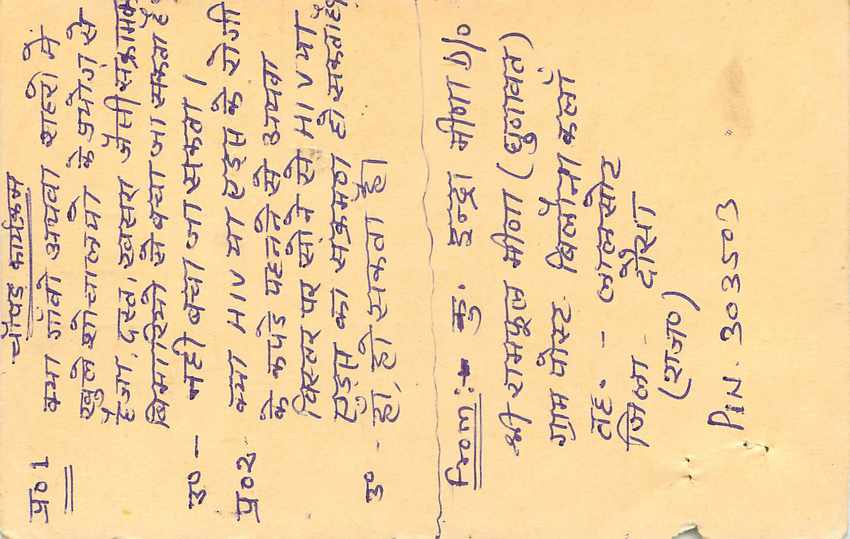 चौपड कार्यक्रम
प्र० 1 क्या गाँवो अथवा शहरो मे
खुले शौचालयो के प्रयोग से
हैजा, दस्त, खसरा जैसी संक्रामक
बिमारियो से बचा जा सकता है
उ० - नही बचा जा सकता ।
प्र० 2 क्या HIV या एड्स के रोगी
के कपडे पहनने से अथवा
बिस्तर पर सोने से HIV या
एड्स का संक्रमण हो सकता है
उ० - हा, हो सकता है।
From:- कु. इन्द्रा मीणा D/o
श्री रामफूल मीणा (घुणावत)
ग्राम पोस्ट बिलौना कलाँ
तह. - लालसोट
जिला - दौसा
(राज०)
PiN. 303503